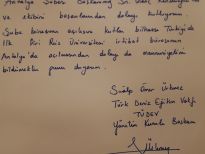 Antalya Şubesi Başkanımız Sn.
ve ekibini başarılarından dolayı kutluyorum.
Şube binasının açılışını kutlar bilhassa Türkiye'de
ilk Piri Reis Üniversitesi irtibat bürosunun
Antalya'da açılmasından dolayı da memnuniyetimi
bildirmekten gurur duyarım.
Ömer
Türk Deniz Eğitim Vakfı
TÜDEV
Yönetim Kurulu Başkanı